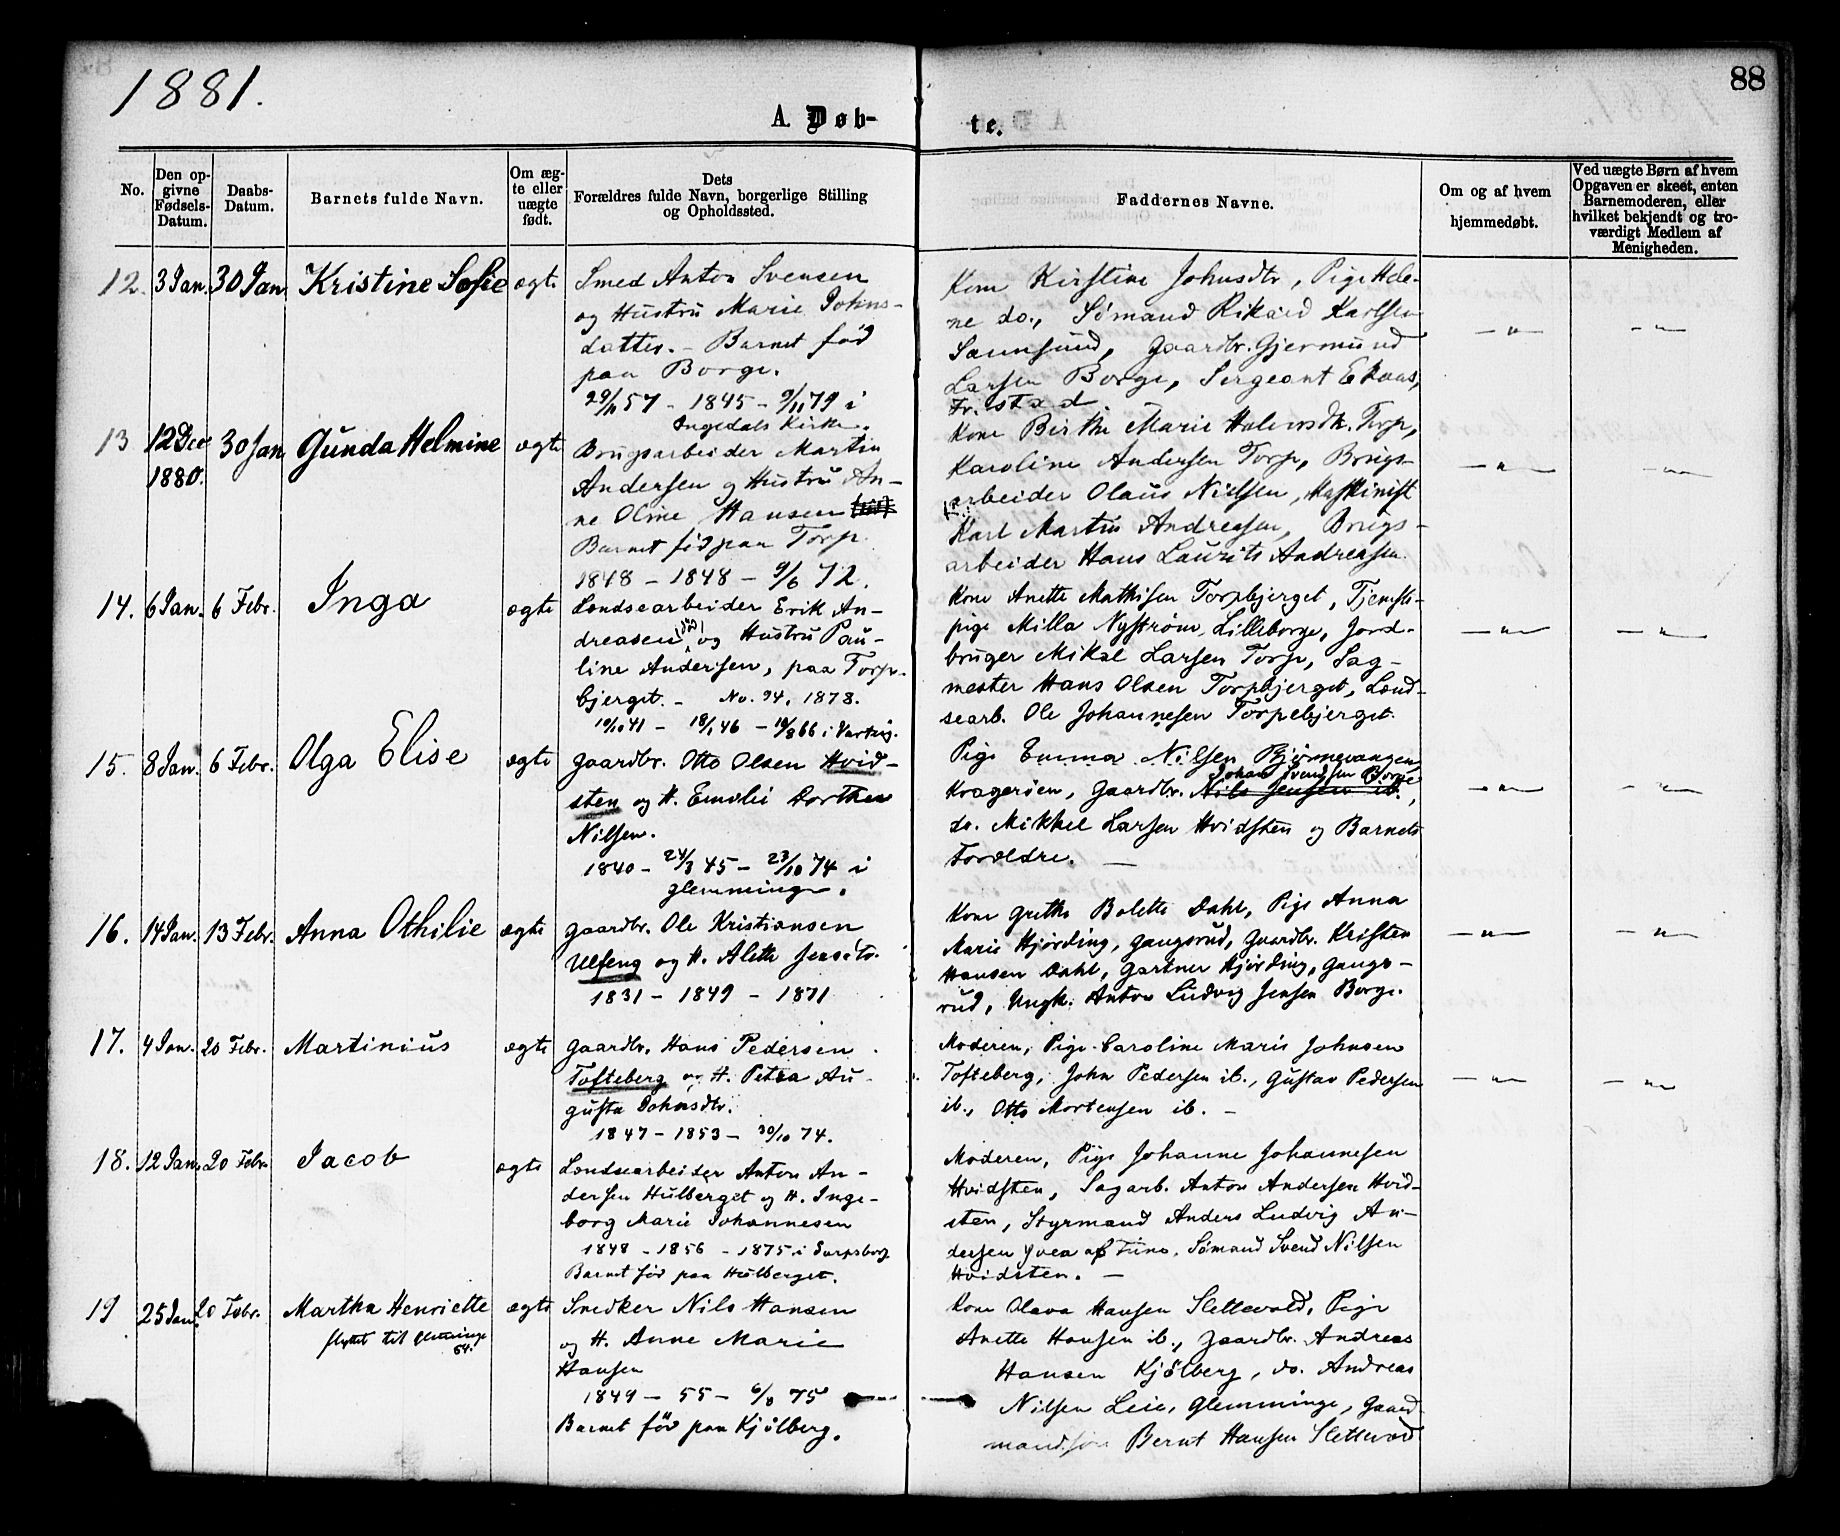 1881.
88
A. Døb-
te.
No.
Den op-
givne
Fødsels-
Datum.
Daabs-
Datum.
Barnets fulde Navn.
Om æg-
te eller
uægte
født.
Dets
Forældres fulde Navn, borgerlige Stilling
og Opholdssted.
Faddernes Navne.
Om og af hvem
hjemmedøbt.
Ved uægte Børn af hvem
Opgaven er skeet, enten
Barnemoderen, eller
hvilket bekjendt og tro-
værdigt Medlem af
Menigheden.
12. 3 Jan. 30 Jan Kristine Sofie ægte
Smed Anton Svensen
og Hustru Marie Johns-
datter. - Barnet fød
paa Borge.
29/11 57 - 1845 - 9/11 79 i
Ingedals Kirke.
Kone Kirstine Johnsdtr, Pige Hele-
ne do., Sømand Rikard Karlsen
Gaardbr. Gjermund
Larsen Borge, Sergeant
Fr.stad
— " —
— " —
13 12 Dec 30 Jan Gunda Helmine ægte
1880.
Brugsarbeider Martin
Andersen og Hustru An-
ne Oline Hansen
Barnet fød paa Torp
1848 - 1848 - 9/6 72.
Kone Birthe Marie Torp,
Karoline Andersen Torp, Brugs-
arbeider Olaus Nielsen, Maskinist
Karl Martin Andreasen, Brugs-
arbeider Hans Laurits Andreasen.
— " —
— " —
14. 6 Jan. 6 Febr. Inga ægte
Londsearbeider Erik An-
dreasen og Hustru Pau-
line Andersen, paa Torp-
bjerget. - No. 94. 1878.
19/10 41 - 18/1 46 - 19/8 66 i Varteig.
Kone Anette Mathisen Torpbjerget, Tjeneste-
pige Milla Nystrøm, Lilleborge, Jord-
bruger Mikal Larsen Torp, Sag-
mester Hans Olsen Torpbjerget, Lond-
searb. Ole Johannesen Torpebjerget.
— " —
— " —
15. 8 Jan. 6 Febr. Olga Elise ægte
Gaardbr. Otto Olsen Hvid-
sten og H. Emilie Dorthea
Nilsen.
1840 - 24/3 45 - 23/10 74 i
Glemminge.
Pige Emma Nilsen Bjørnevaagen
Johan Svendsen Borge
Kragerøen, Gaardbr. Nils Jensen ib.,
do. Mikkel Larsen Hvidsten og Barnets
Forældre. —
— " —
— " —
16. 14 Jan. 13 Febr. Anna Othilie ægte
Gaardbr. Ole Kristiansen
Ulfeng og H. Alette Jensdtr.
1831 - 1849 - 1871
Kone Grethe Bolette Dahl, Pige Anna
Marie Hjørding, Gangsrud, Gaardbr. Kristen
Hansen Dahl, Gartner Hjørding, Gangs-
rud, Ungk. Anton Ludvig Jensen Borge.
— " —
— " —
17. 4 Jan. 20 Febr. Martinius ægte
Gaardbr. Hans Pedersen
Tofteberg og H. Petra Au-
gusta Johnsdtr.
1847 - 1853 - 30/10 74.
Moderen, Pige Caroline Marie Johnsen
Tofteberg, John Pedersen ib., Gustav Pedersen
ib., Otto Mortensen ib. —
— " —
— " —
18. 12 Jan. 20 Febr. Jacob ægte
Londsearbeider Anton An-
dersen Hulberget og H. Inge-
borg Marie Johannesen
1848 - 1856 - 1875 i Sarpsborg
Barnet fød paa Hulberget.
Moderen, Pige Johanne Johannesen
Hvidsten, Sagarb. Anton Andersen Hvid-
sten, Styrmand Anders Ludvig An-
dersen Sømand Svend Nilsen
Hvidsten. —
19 25 Jan. 20 Febr. Martha Henriette ægte
flyttet til Glemminge
Snedker Nils Hansen
og H. Anne Marie
Hansen
1849 - 55 - 6/8 75
Barnet fød paa Kjølberg.
Kone Olava Hansen Slettevold, Pige
Anette Hansen ib., Gaardbr. Andreas
Hansen Kjølberg, do. Andreas
Nilsen Leie, Glemminge, Gaard-
mandsøn Bernt Hansen Slettevold